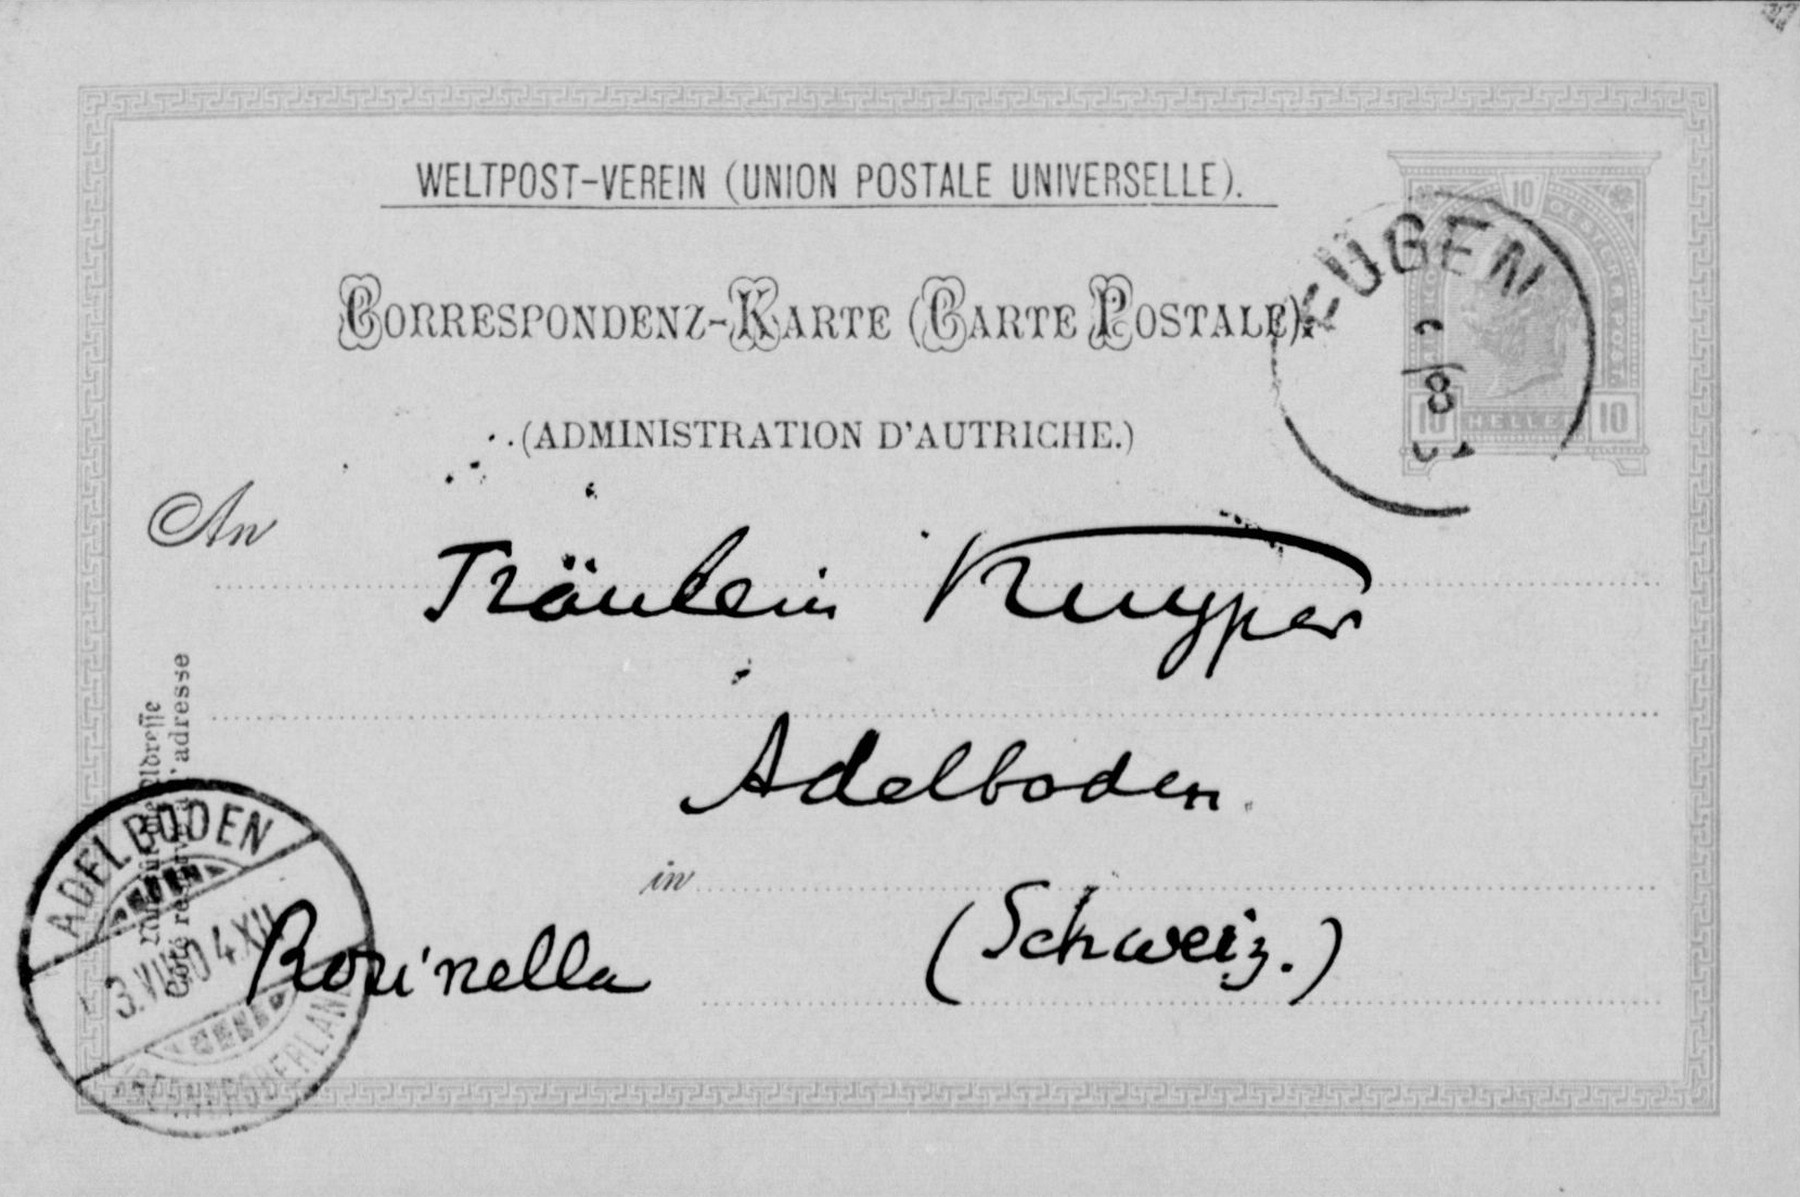 WELTPOST-VEREIN (UNION POSTALE UNIVERSELLE).
CORRESPONDENZ-KARTE (CARTE POSTALE).
(ADMINISTRATION D'AUTRICHE.)
10
OESTERR. POST
10 HELLER 10
EUGEN
8
An
Fräulein Kuyper
Adelboden.
in
(Schweiz.)
Rosinella
l'adresse
ADELBODEN
3.VIII.04.XII